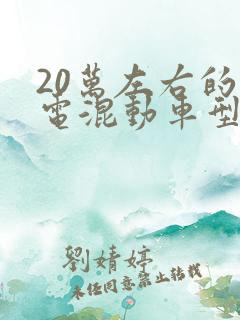 20萬左右的
電混動車型
劉婧婷
未経同意禁止轉載